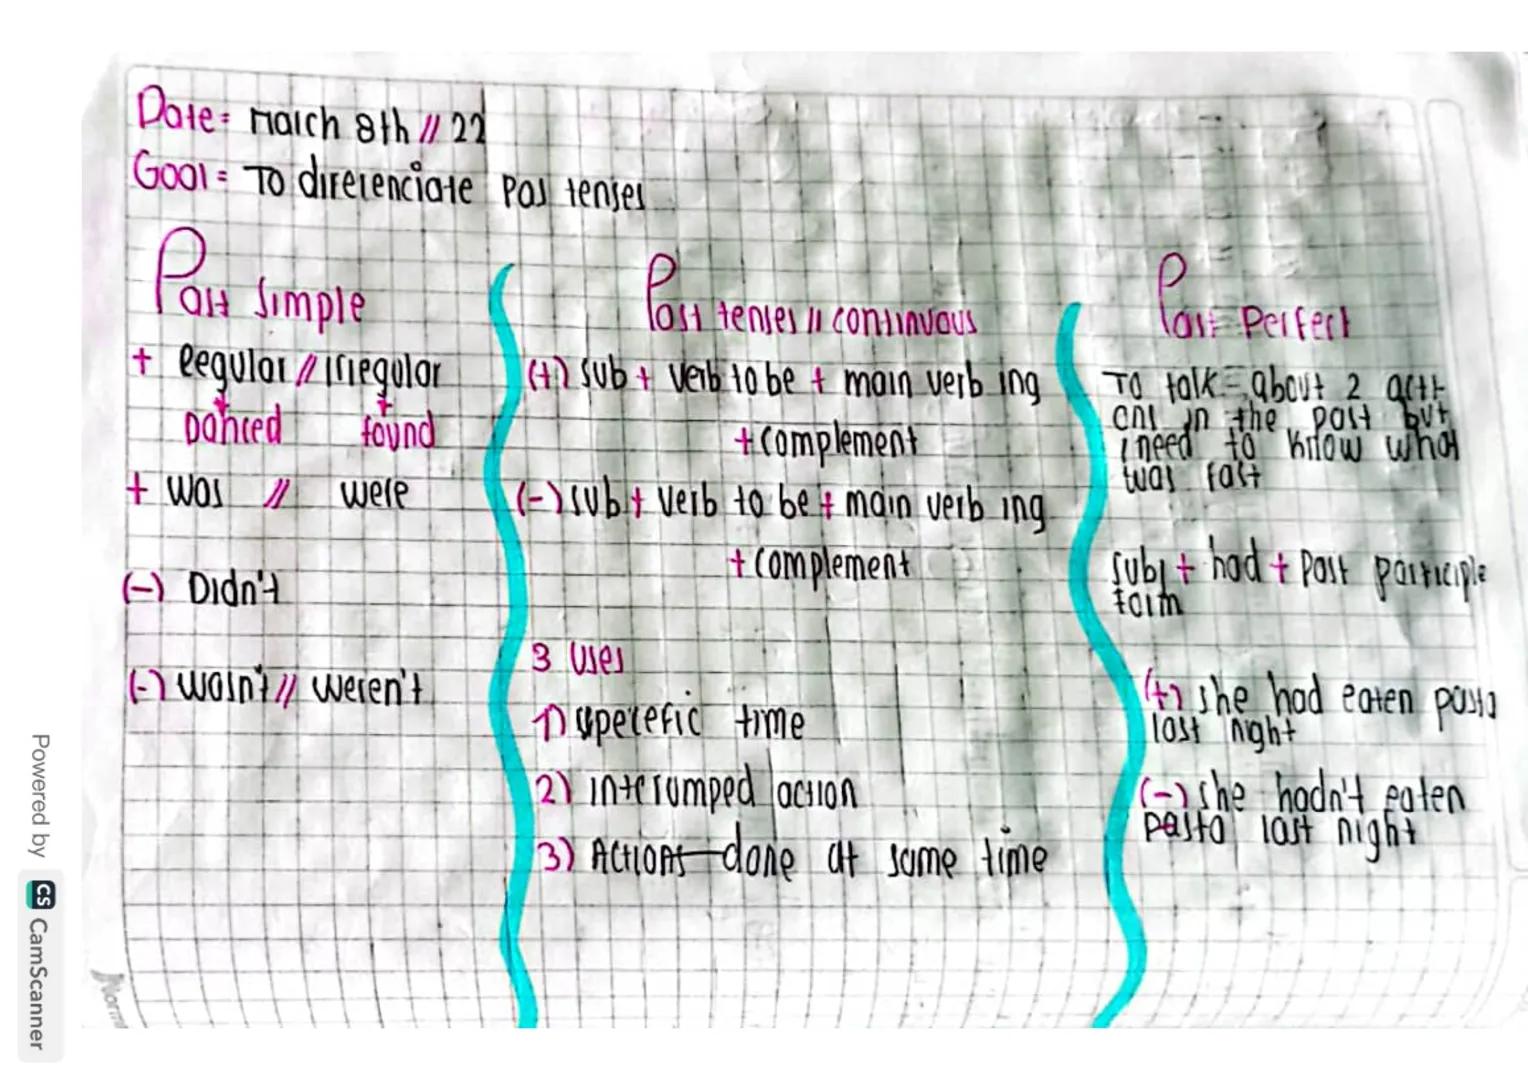 Date: March 8th // 22
Goal: To direrenciate Pas tenses
Past Simple
+ Regular // Irregular
Danced found
+ was // were
(-) Didn't
(-) wasn't // weren't
Past tenses // continuous
(+) Sub + verb to be + main verb ing
+ complement
(-) Sub + verb to be + main verb ing
+ complement
3 Uses
1) sperefic time
2) interrumped action
3) Actions done at same time
Past Perfect
To talk about 2 acti
ons in the past but
i need to know what
was fast
Subj + had + Past participle
form
(+) She had eaten pasta
last night
(-) She hadn't eaten
pasta last night
Powered by CS CamScanner